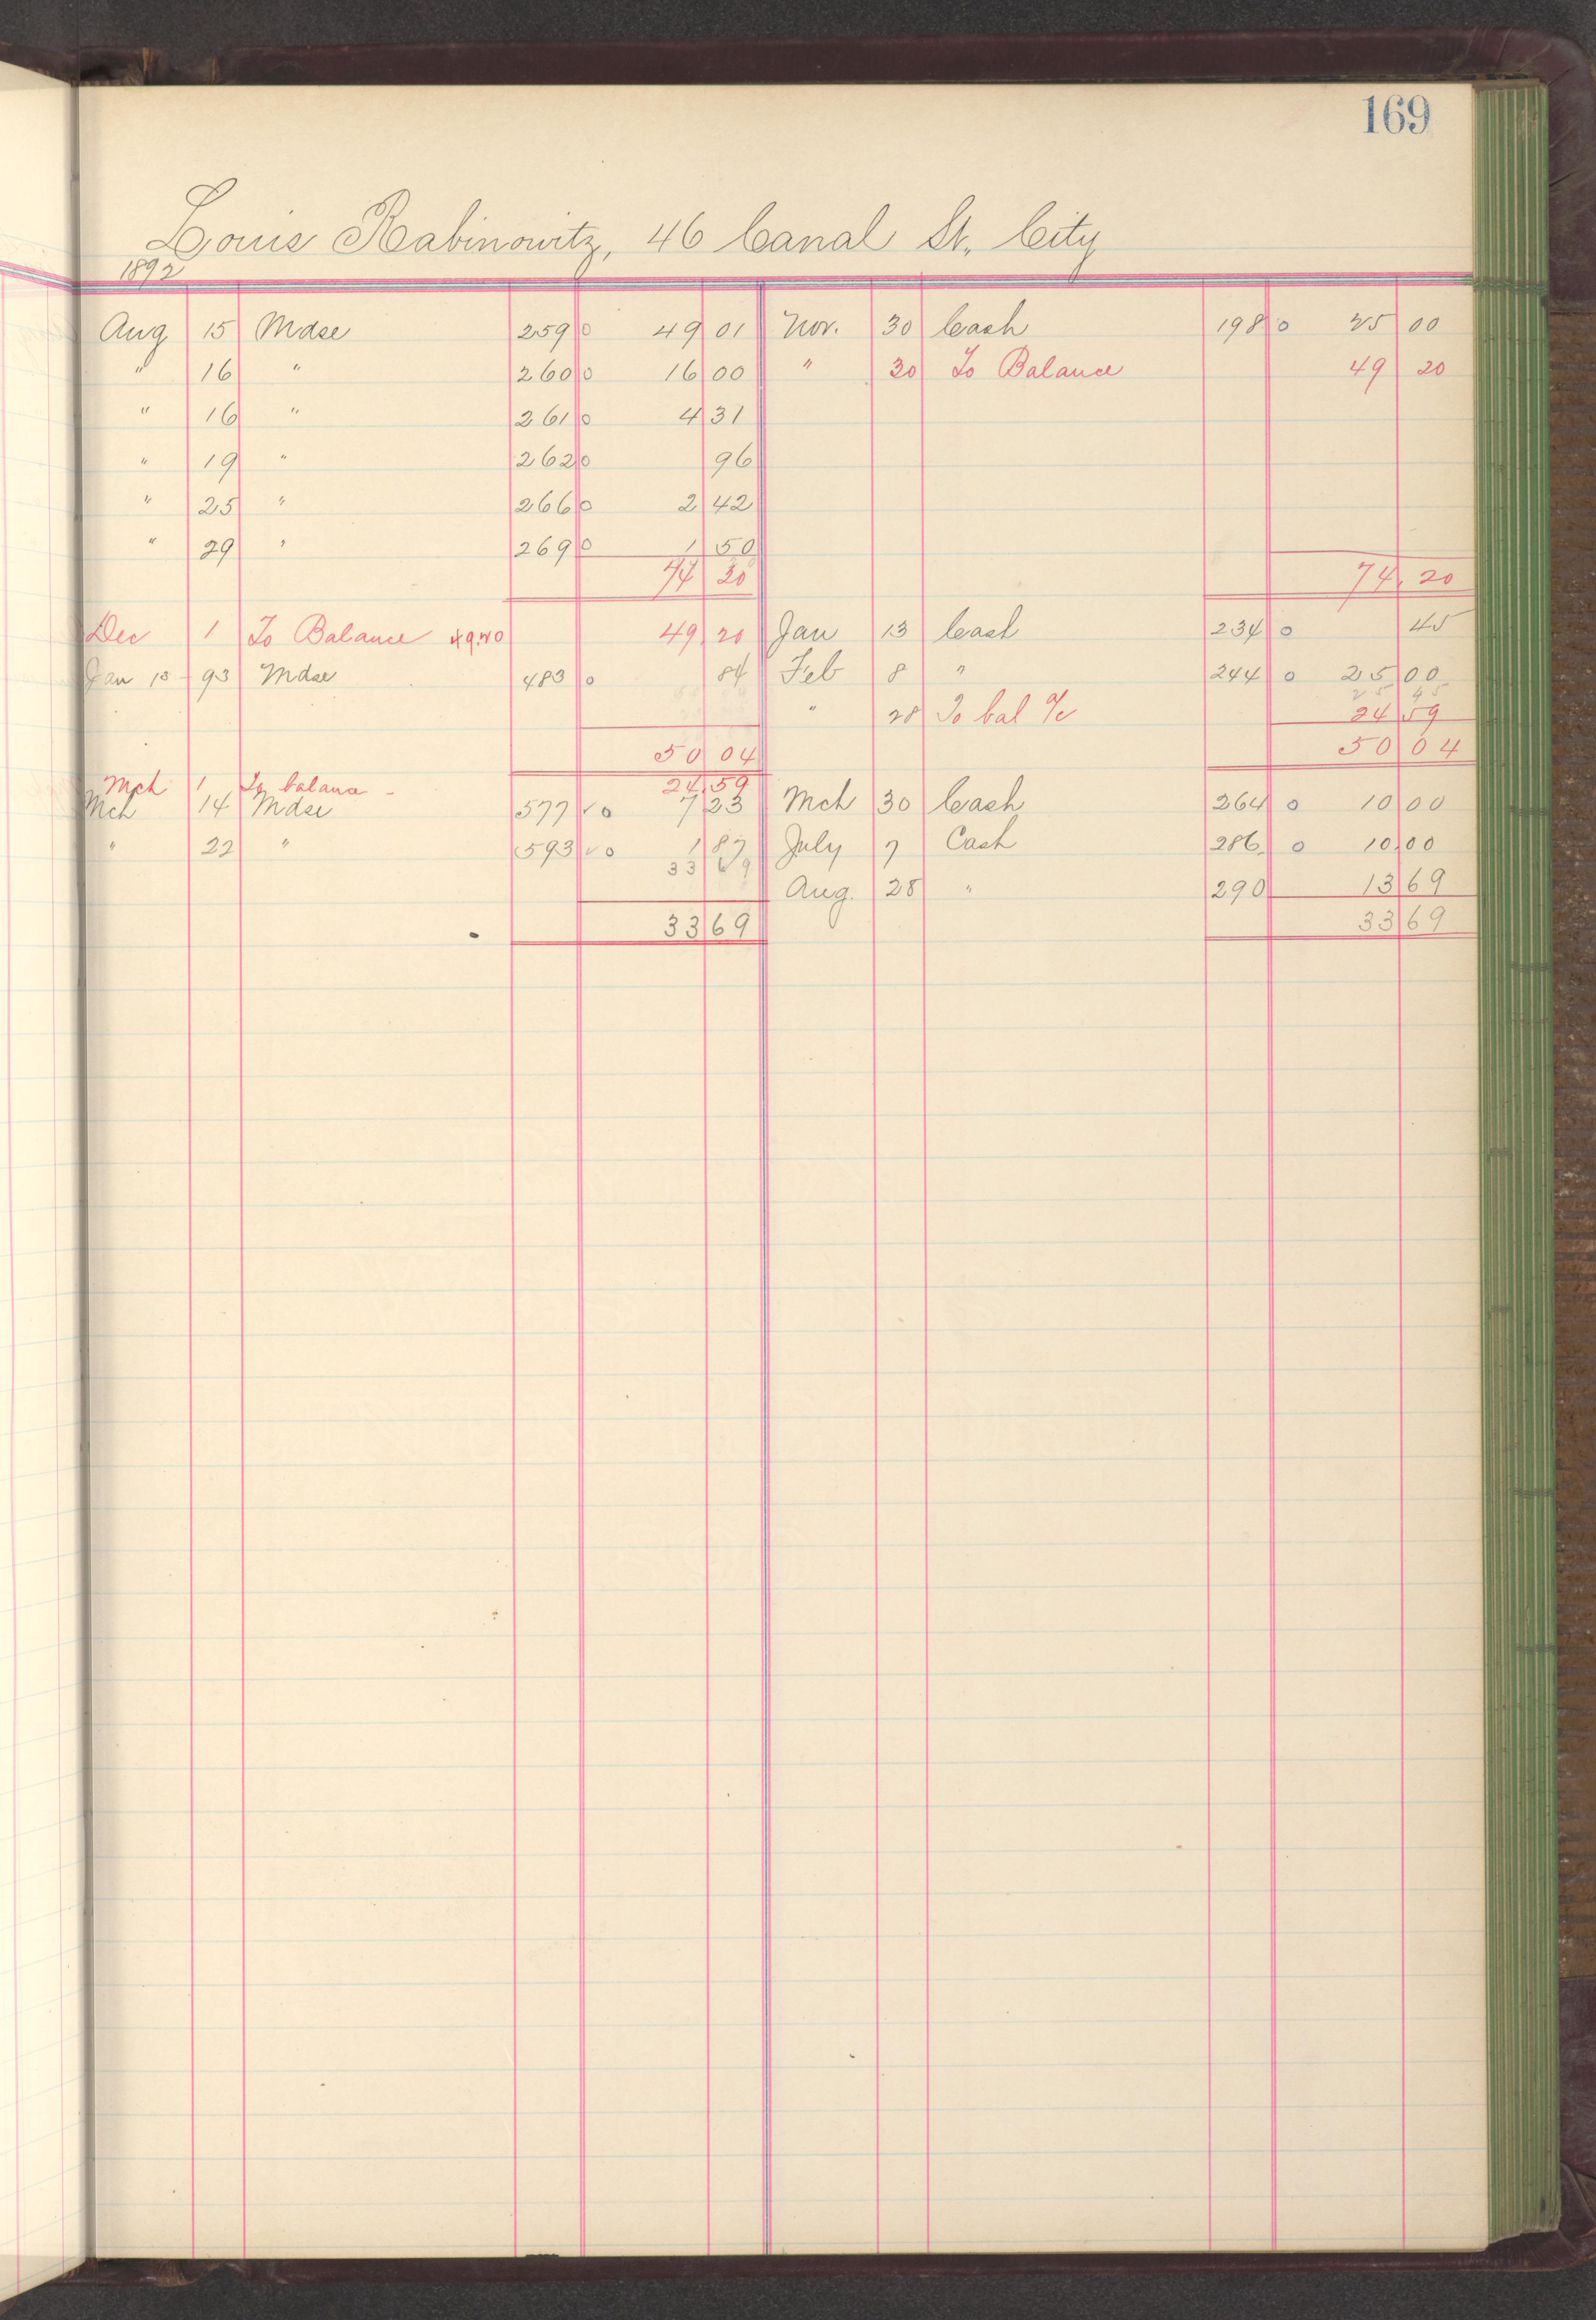 169
Louis Rabinowitz, 46 Canal St. City
1892
Aug 15 Mdse 259 0 49 01 Nov. 30 Cash 198 0 25 00
" 16 " 260 0 16 00 " 30 To Balance 49 20
" 16 " 261 0 4 31
" 19 " 262 0 96
" 25 " 266 0 2 42
" 29 " 269 0 1 50
74 20 74.20
Dec 1 To Balance 49.20 49.20 Jan 13 Cash 234 0 45
Jan 13 - 93 Mdse 483 0 84 Feb 8 " 244 0 25 00
25 45
" 28 To bal a/c 24 59
50 04 50 04
Mch 1 To balance - 24.59
Mch 14 Mdse 577 ✓ 0 7 23 Mch 30 Cash 264 0 10 00
" 22 " 593 ✓ 0 1 87 July 7 Cash 286 0 10.00
33 69
Aug. 28 " 290 13 69
33 69 33 69